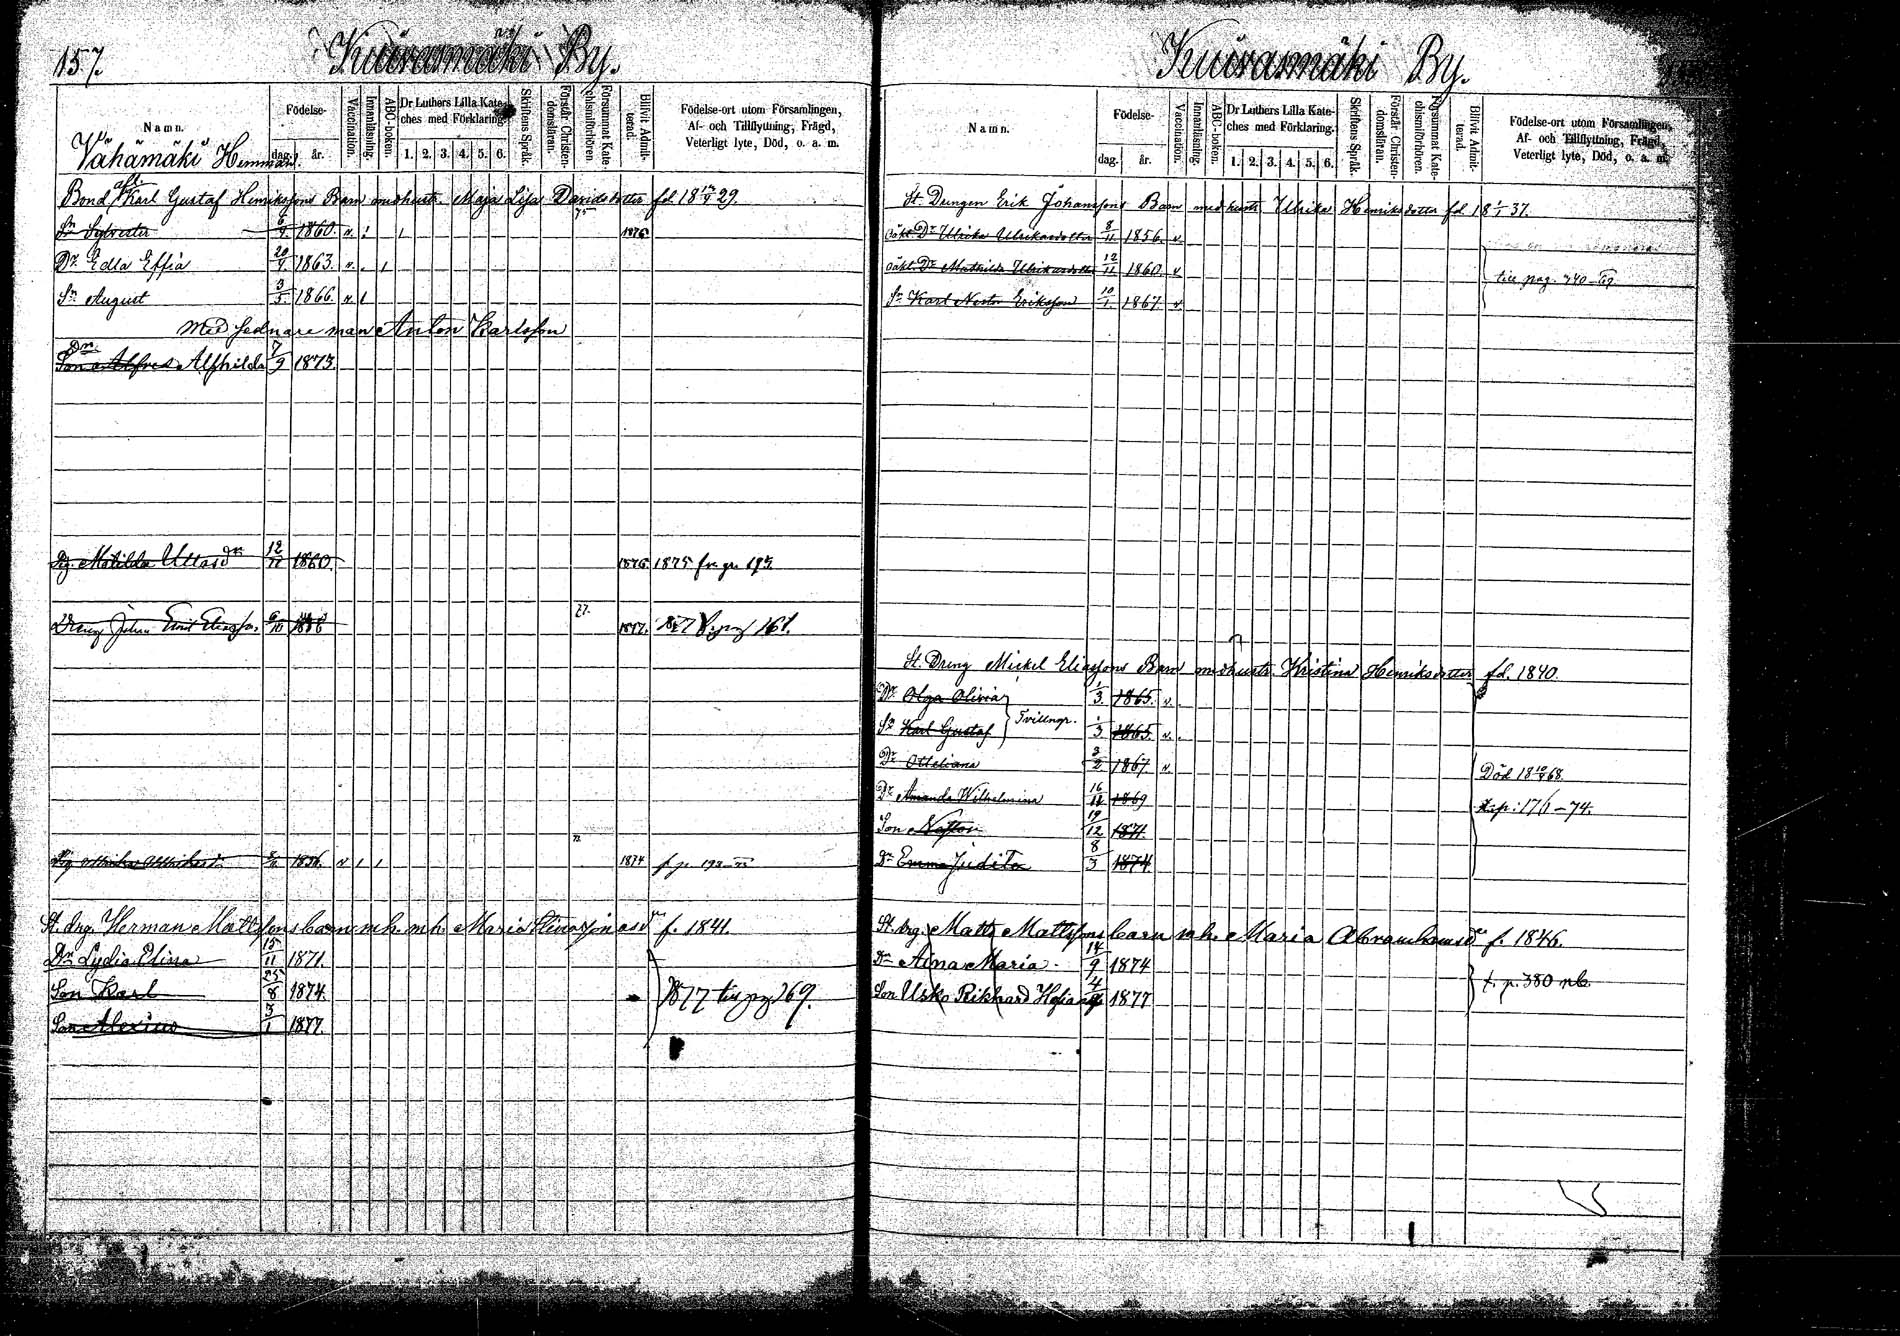 157.
Kuivasmäki By.
Namn.
Födelse-
dag. år.
Vaccination.
Innanläsning.
ABC-boken.
Dr Luthers Lilla Kate-
ches med Förklaring.
1. 2. 3. 4. 5. 6.
Skriftens Språk.
Förstår Christen-
domsläran.
Försummat Kate-
chismiförhören.
Blifvit Admit-
terad.
Födelse-ort utom Församlingen,
Af- och Tillflyttning, Frägd,
Veterligt lyte, Död, o. a. m.
Vähämäki Hemman.
Bond. afl. Karl Gustaf Henrikssons Barn med hustr. Maja Lisa Davidsdotter fd. 18 29.
Sn Sylvester 1860. v. 1 1 75 1876
Dr Edla Effia 20/4 1863. v. 1
Sn August 3/5 1866. v 1
med sednare man Anton Karlsson
Dr
Son Alfred Alfhilda 7/9 1873.
Pig. Matilda Ullasdr 12/11 1860. 1876. 1875 fr. pg. 193.
Dreng Johan Emil Eliasson 6/10 77. 1877. 1877 161.
Pig Ulrika Ulrikasdr 8/11 1856. v 1 1 1874 f. p. 193
St. drg. Herman Mattssons barn m. h. Maria f. 1841.
Dr Lydia Elina 15/11 1871.
Son Karl 25/8 1874.
Son Alexius 3/1 1877.
1877 till pg 169.
Kuivasmäki By.
Namn.
Födelse-
dag. år.
Vaccination.
Innanläsning.
ABC-boken.
Dr Luthers Lilla Kate-
ches med Förklaring.
1. 2. 3. 4. 5. 6.
Skriftens Språk.
Förstår Christen-
domsläran.
Försummat Kate-
chismiförhören.
Blifvit Admit-
terad.
Födelse-ort utom Församlingen,
Af- och Tillflyttning, Frägd,
Veterligt lyte, Död, o. a. m.
St. Drengen Erik Johanssons Barn med hustr. Ulrika Henriksdotter fd. 18 1/1 37.
oäkt. Dr Ulrika Ulrikasdotter 8/11 1856. v.
oäkt. Dr Mathilda Ulrikasdotter 12/11 1860. v
till pag. 240
Sn Karl Nestor Eriksson 10/1 1867 v.
St. Dreng Mickel Eliassons Barn med hustr. Kristina Henriksdotter fd. 1840.
Dr Olga Olivia 1/3 1865. v.
Tvillingr.
Sn Karl Gustaf 1/3 1865. v.
Dr Otteliana 3/2 1867. v. Död 18 68.
Dr Amanda Wilhelmina 16/11 1869 t. p. 176 - 74.
Son 19/12 1871.
Dr Emma Judita 8/3 1874.
St. drg. Matts Mattssons barn m. h. Maria Abrahamsdr f. 1846.
Dr Aina Maria 14/9 1874
t. p. 380 nb.
Son Usko Rikhard 1877